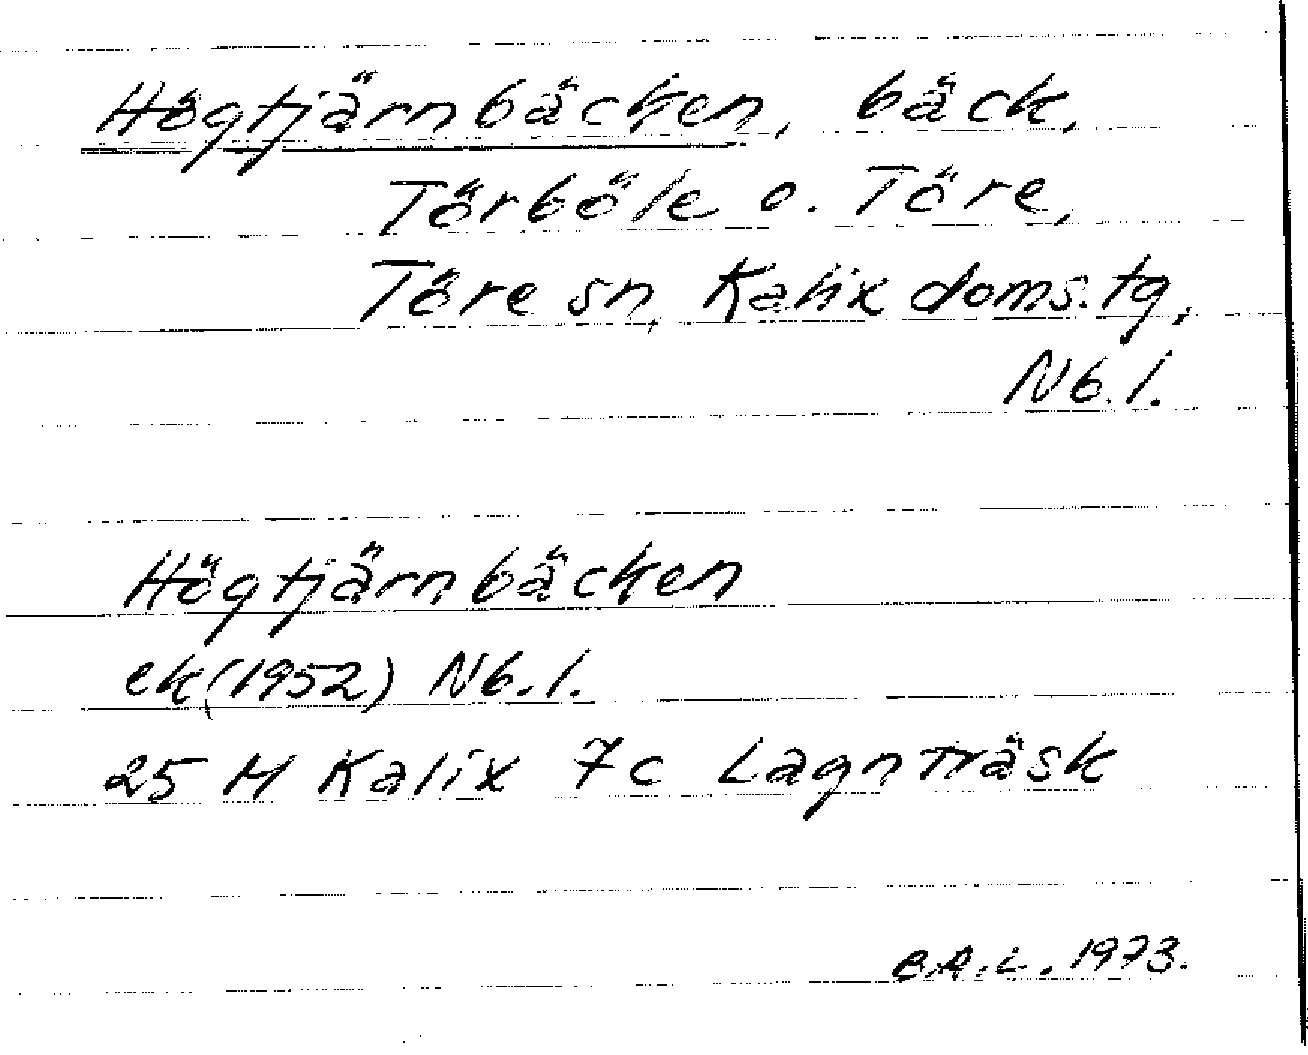 Högtjärnbäcken, bäck,
Törböle o. Töre,
Töre sn, Kalix doms.tg,
Nb.l.
Högtjärnbäcken
ek(1952) Nb.l.
25 M Kalix 7c Lagnträsk
B.A.L. 1973.